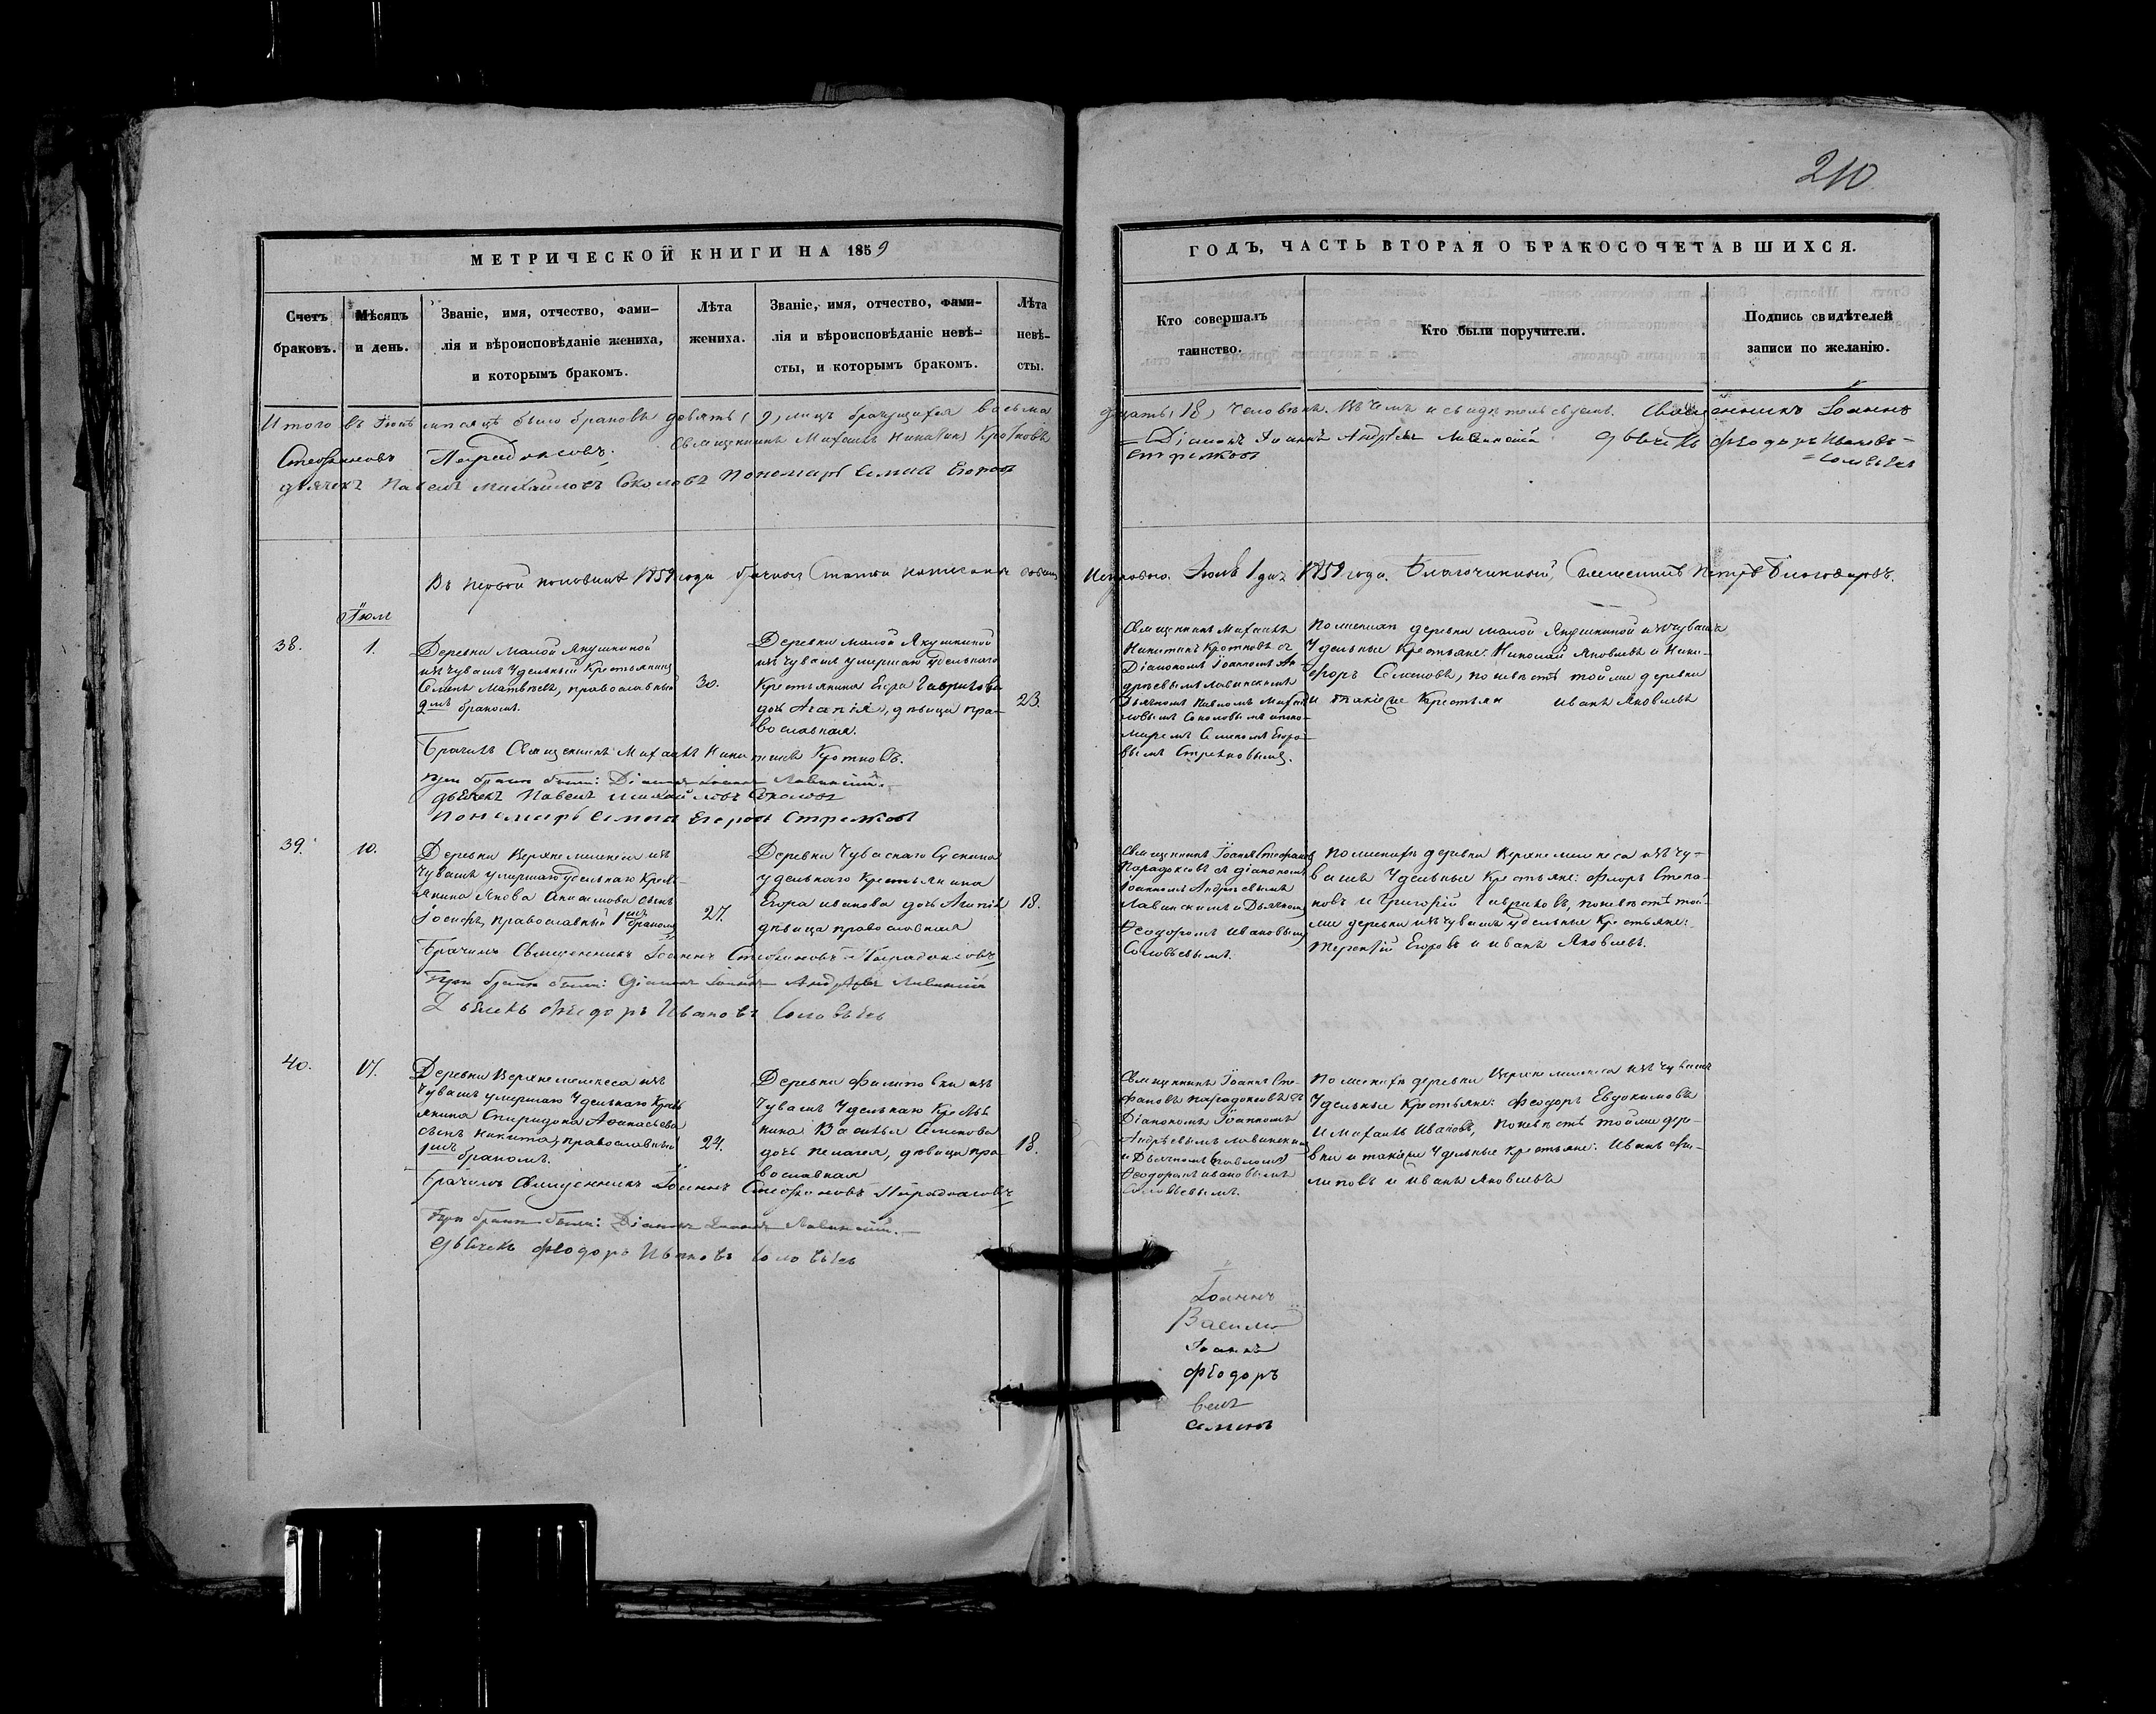 210
МЕТРИЧЕСКОЙ КНИГИ НА 1859
ГОДЪ, ЧАСТЬ ВТОРАЯ О БРАКОСОЧЕТАВШИХСЯ.
Счетъ
браковъ.
Мѣсяцъ
и день.
Званіе, имя, отчество, фами-
лія и вѣроисповѣданіе жениха,
и которымъ бракомъ.
Лѣта
жениха.
Званіе, имя, отчество, фами-
лія и вѣроисповѣданіе невѣ-
сты, и которымъ бракомъ.
Лѣта
невѣ-
сты.
Кто совершалъ
таинство.
Кто были поручители.
Подпись свидѣтелей
записи по желанію.
Итого въ Іюнѣ мѣсяцѣ было браковъ девять (9) лицъ брачущихся восьмна
дцать (18) человѣкъ. Въ чемъ и свидѣтельствуемъ. Священникъ Іоаннъ
Стефановъ Парадоксовъ. Священникъ Михаилъ Никитинъ Кротковъ
Діаконъ Іоаннъ Андреевъ Лавинскій дьячекъ Ѳеодоръ Ивановъ
Соловьевъ
дьячекъ Павелъ Михайловъ Соколовъ Пономарь Семенъ Егоровъ
Стрелковъ
Въ первой половинѣ 1859 года брачная статья написана
Іюля 1 дня 1859 года. Благочинный, Священникъ Петръ
Іюль
38.
1.
Деревни малой Якушкиной
изъ чувашъ удѣльный крестьянинъ
Семенъ Матвѣевъ, православный
2мъ бракомъ.
30.
Деревни малой Якушкиной
изъ чувашъ умершаго удѣльнаго
крестьянина Егора Гаврилова
дочь Агапія, дѣвица пра-
вославная.
23.
Священникъ Михаилъ
Никитинъ Кротковъ съ
Діакономъ Іоанномъ Ан-
дреевымъ Лавинскимъ
Дьячкомъ Павломъ Михай
ловымъ Соколовымъ и поно-
маремъ Семеномъ Егоро-
вымъ Стрелковымъ.
По женихѣ деревни малой Якушкиной изъ чувашъ
Удѣльные крестьяне: Николай Яковлевъ и Ники-
форъ Семеновъ, по невѣстѣ той же деревни
и такіе же крестьяне Иванъ Яковлевъ
Брачилъ Священникъ Михаилъ Никитинъ Кротковъ.
При бракѣ были: Діаконъ Іоаннъ Лавинскій.
дьячекъ Павелъ Михайловъ Соколовъ
Пономарь Семенъ Егоровъ Стрелковъ
39.
10.
Деревни Верхнемелекеса изъ
чувашъ умершаго удѣльнаго кресть-
янина Якова Анисимова сынъ
Іосифъ, православный 1мъ бракомъ
27.
Деревни Чувашскаго Сускана
удѣльнаго крестьянина
Егора Иванова дочь Агапія
дѣвица православная
18.
Священникъ Іоаннъ Стефановъ
Парадоксовъ съ діакономъ
Іоанномъ Андреевымъ
Лавинскимъ и Дьячкомъ
Ѳеодоромъ Ивановымъ
Соловьевымъ.
По женихѣ деревни Верхнемелекеса изъ чу-
вашъ Удѣльные крестьяне: Флоръ Степа-
новъ и Григорій Гавриловъ, по невѣстѣ той
же деревни изъ чувашъ удѣльные крестьяне:
Терентій Егоровъ и Иванъ Яковлевъ.
Брачилъ Священникъ Іоаннъ Стефановъ Парадоксовъ
При бракѣ были: Діаконъ Іоаннъ Андреевъ Лавинскій
Дьячекъ Ѳеодоръ Ивановъ Соловьевъ
40.
17.
Деревни Верхнемелекеса изъ
чувашъ умершаго Удѣльнаго кресть
янина Спиридона Аѳанасьева
сынъ Никита, православный
1мъ бракомъ.
24.
Деревни Филиповки изъ
чувашъ Удѣльнаго крестья
нина Василья Семенова
дочь Пелагея, дѣвица пра
вославная
18.
Священникъ Іоаннъ Сте-
фановъ Парадоксовъ съ
Діакономъ Іоанномъ
Андреевымъ Лавинскимъ
и Дьячкомъ
Ѳеодоромъ Ивановымъ
Соловьевымъ.
По женихѣ деревни Верхнемелекеса изъ чувашъ
Удѣльные крестьяне: Ѳеодоръ Евдокимовъ
и Михаилъ Ивановъ, по невѣстѣ той же дере-
вни и такіе же Удѣльные крестьяне: Иванъ Фи-
липовъ и Иванъ Яковлевъ
Брачилъ Священникъ Іоаннъ Стефановъ Парадоксовъ
При бракѣ были: Діаконъ Іоаннъ Лавинскій.
Дьячекъ Ѳеодоръ Ивановъ Соловьевъ
Іоаннъ
Василій
Іоаннъ
Ѳеодоръ
велъ
Семенъ